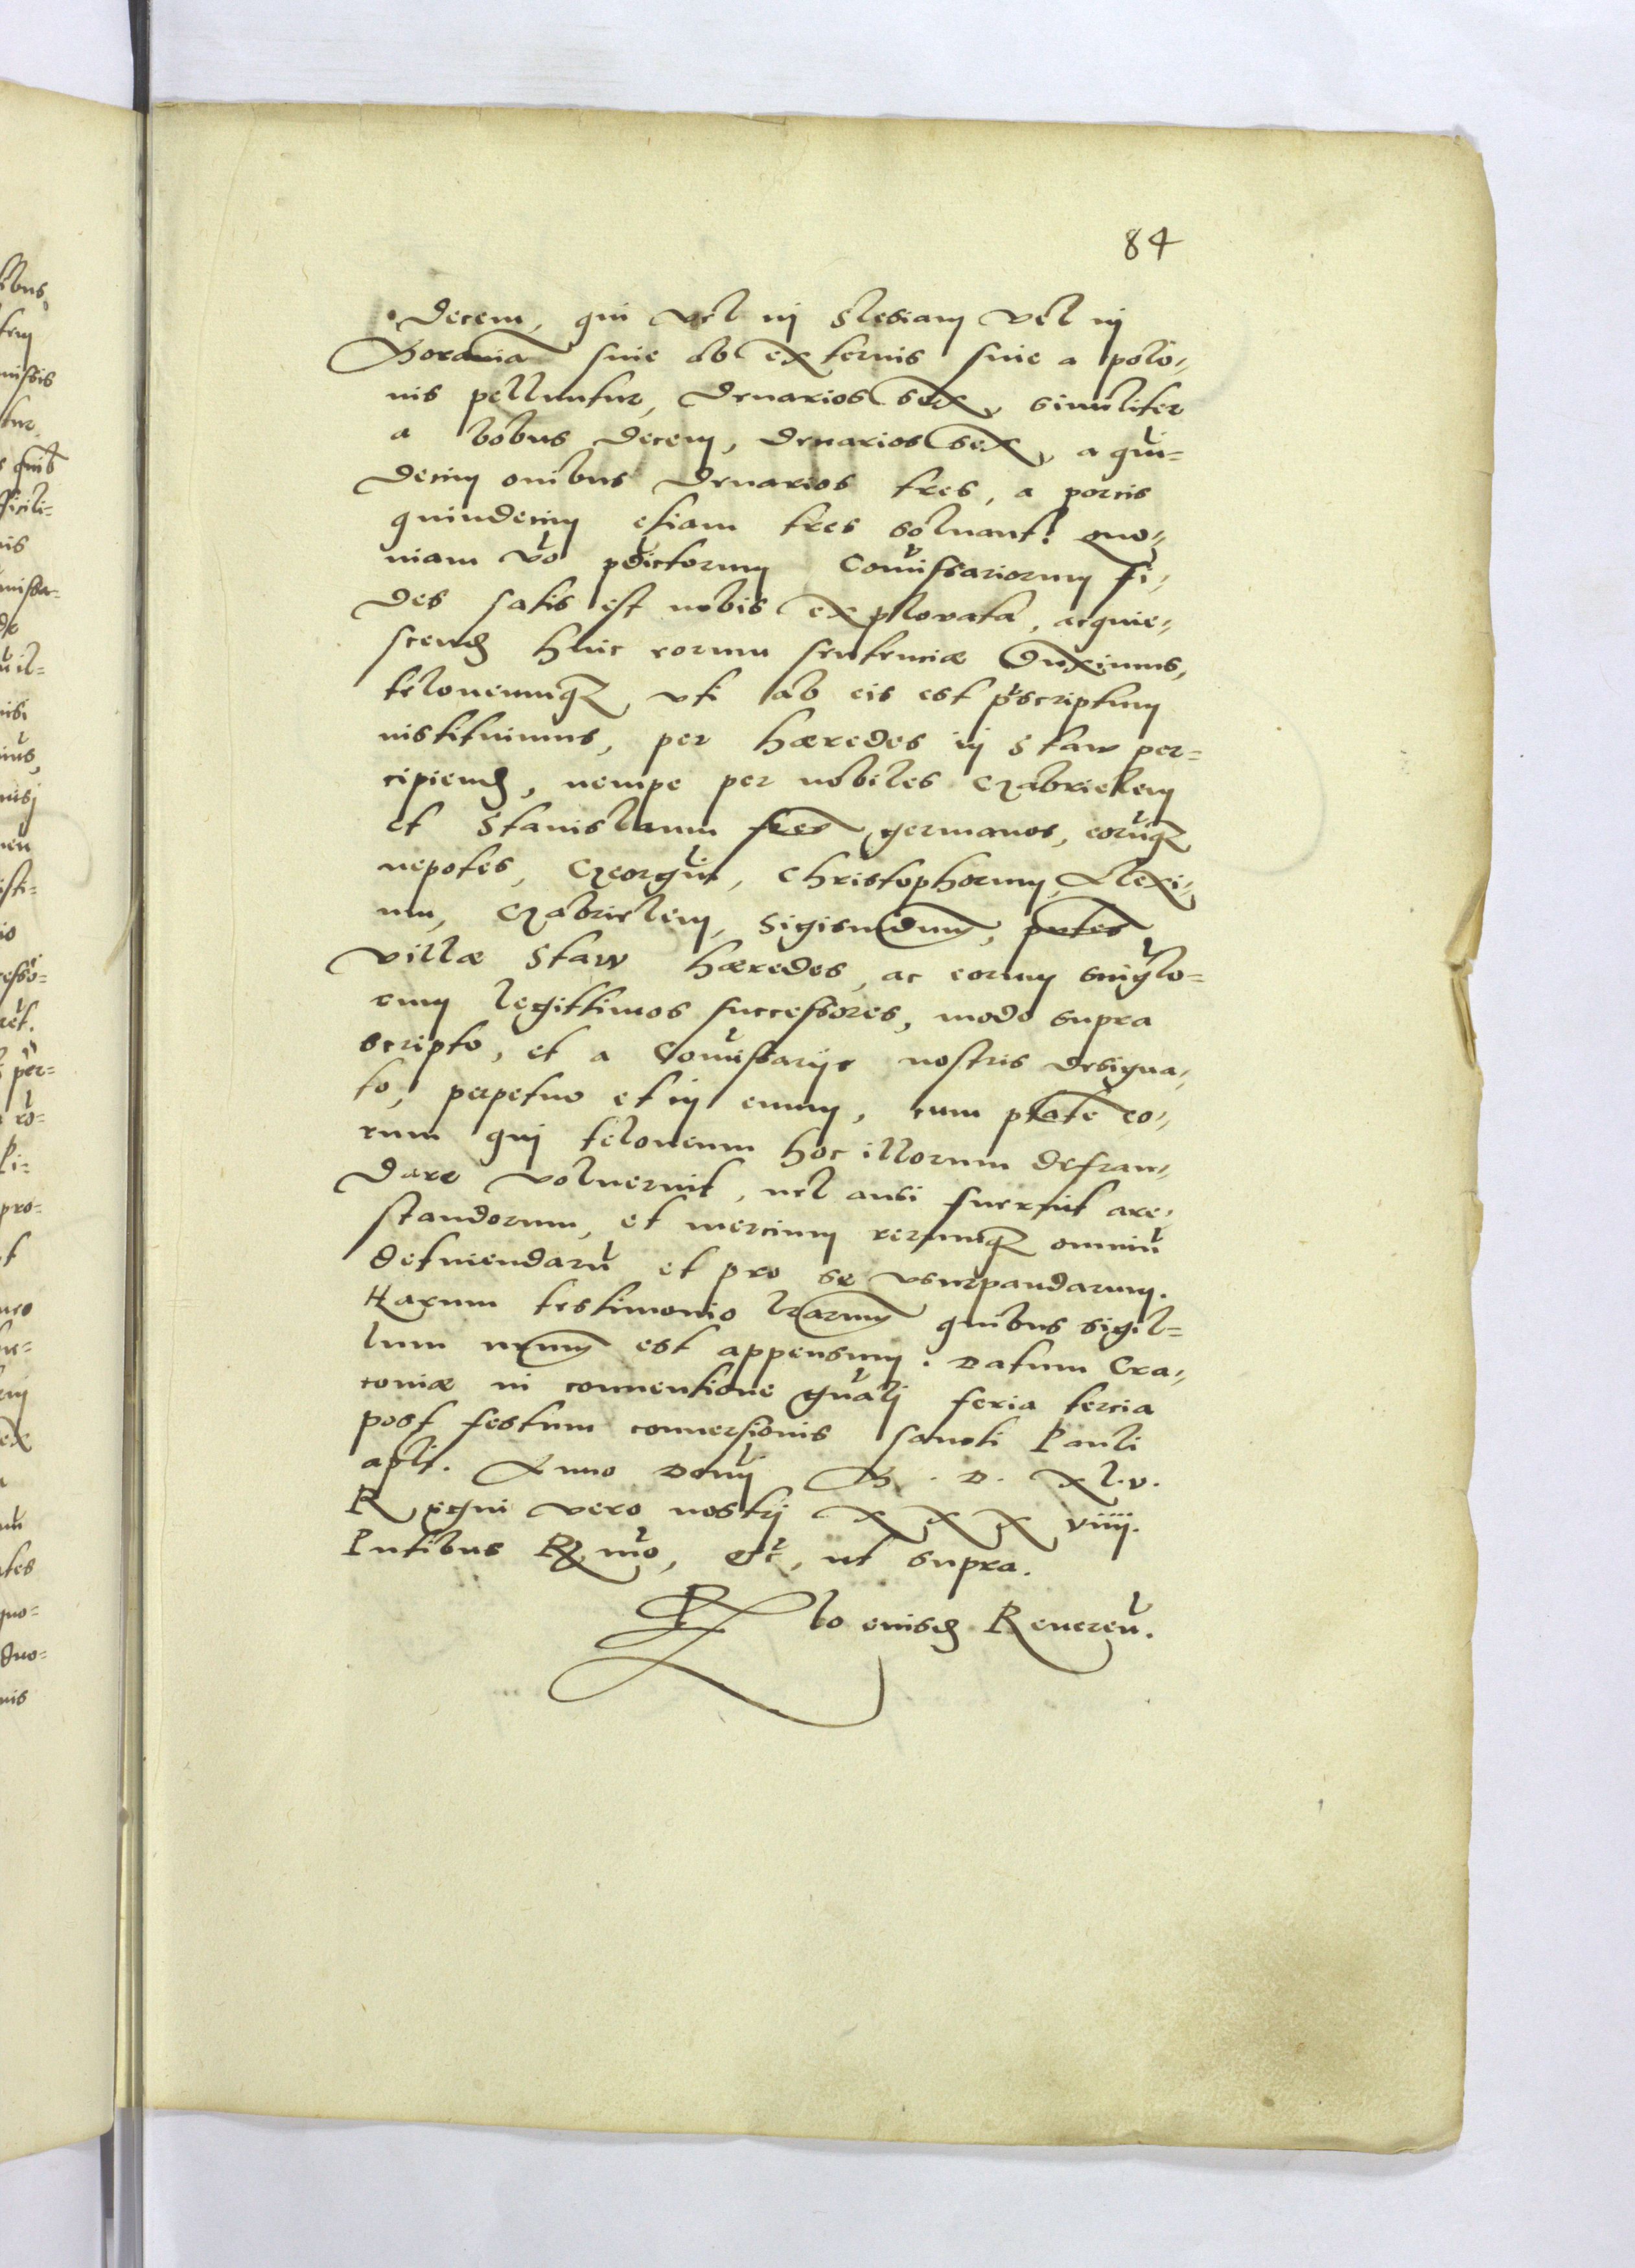 84
decem, qui vel in Slesiam vel in
Moraviã siue ab externis siue a polo-
nis pelluntur, denarios sex, similiter
a bobus decem, denarios sex, a quĩ-
decim ouibus denarios tres, a porcis
quindecim etiam tres soluant. Quo-
niam vo pdictorum Comissariorum fi-
des satis est nobis explorata, acquie-
scend huic eorum sententiæ duximus,
teloneumq vti ab eis est pscriptum
instituimus, per hæredes in Staw per-
cipiend, nempe per nobiles Gabrielem
et Stanislaum fres germanos, eorumq
nepotes, Georgiũ, Christophorum, Alexi-
um, Gabrielem, Sigismdum, pntes
villæ Staw hæredes, ac eorum singlo-
rum legittimos successores, modo supra
scripto, et a Comissarijs nostris designa-
to, perpetuo et in euum, cum ptate eo-
rum qui teloneum hoc illorum defrau-
dare voluerint, vel ausi fuerint are-
standorum, et mercium rerumq omniũ
detinendarũ et pro se vsurpandarum.
Harum testimonio lrarum quibus sigil-
lum nrum est appensum. Datum Cra-
couiæ in conuentione gnãli feria tercia
post festum conuersionis sancti Pauli
apli. Anno Domi M. D. xl.v.
Regni vero nostri xxxviiij.
Pntibus Rmo, etc, ut supra.
Rlo eiusd Reueren.